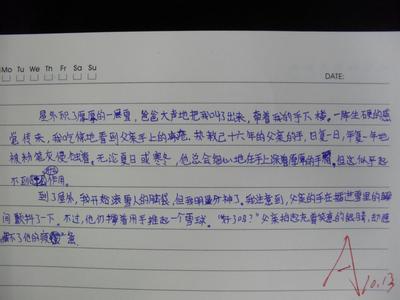 Mo Tu We Th Fr Sa Su
DATE:
屋外积了厚厚的一层雪,爸爸大声地把我叫出来,牵着我的手下楼。一阵生硬的感
觉传来,我吃惊地看到父亲手上的
十六年的父亲的手,日复一日,年复一年地
被粉笔灰侵蚀着。无论夏日或寒冬,他总会细心地在手上涂着厚厚的手
但这似乎起
不到作用。
到了屋外,我开始滚雪人的脑袋,但我明显分神了。我注意到,父亲的手在插进雪里的瞬
间颤抖了一下。不过,他仍撑着用手堆起一个雪球。“好了吗?”父亲抬起充着笑意的眼睛,却遮
盖不了他的疲
A
10.13